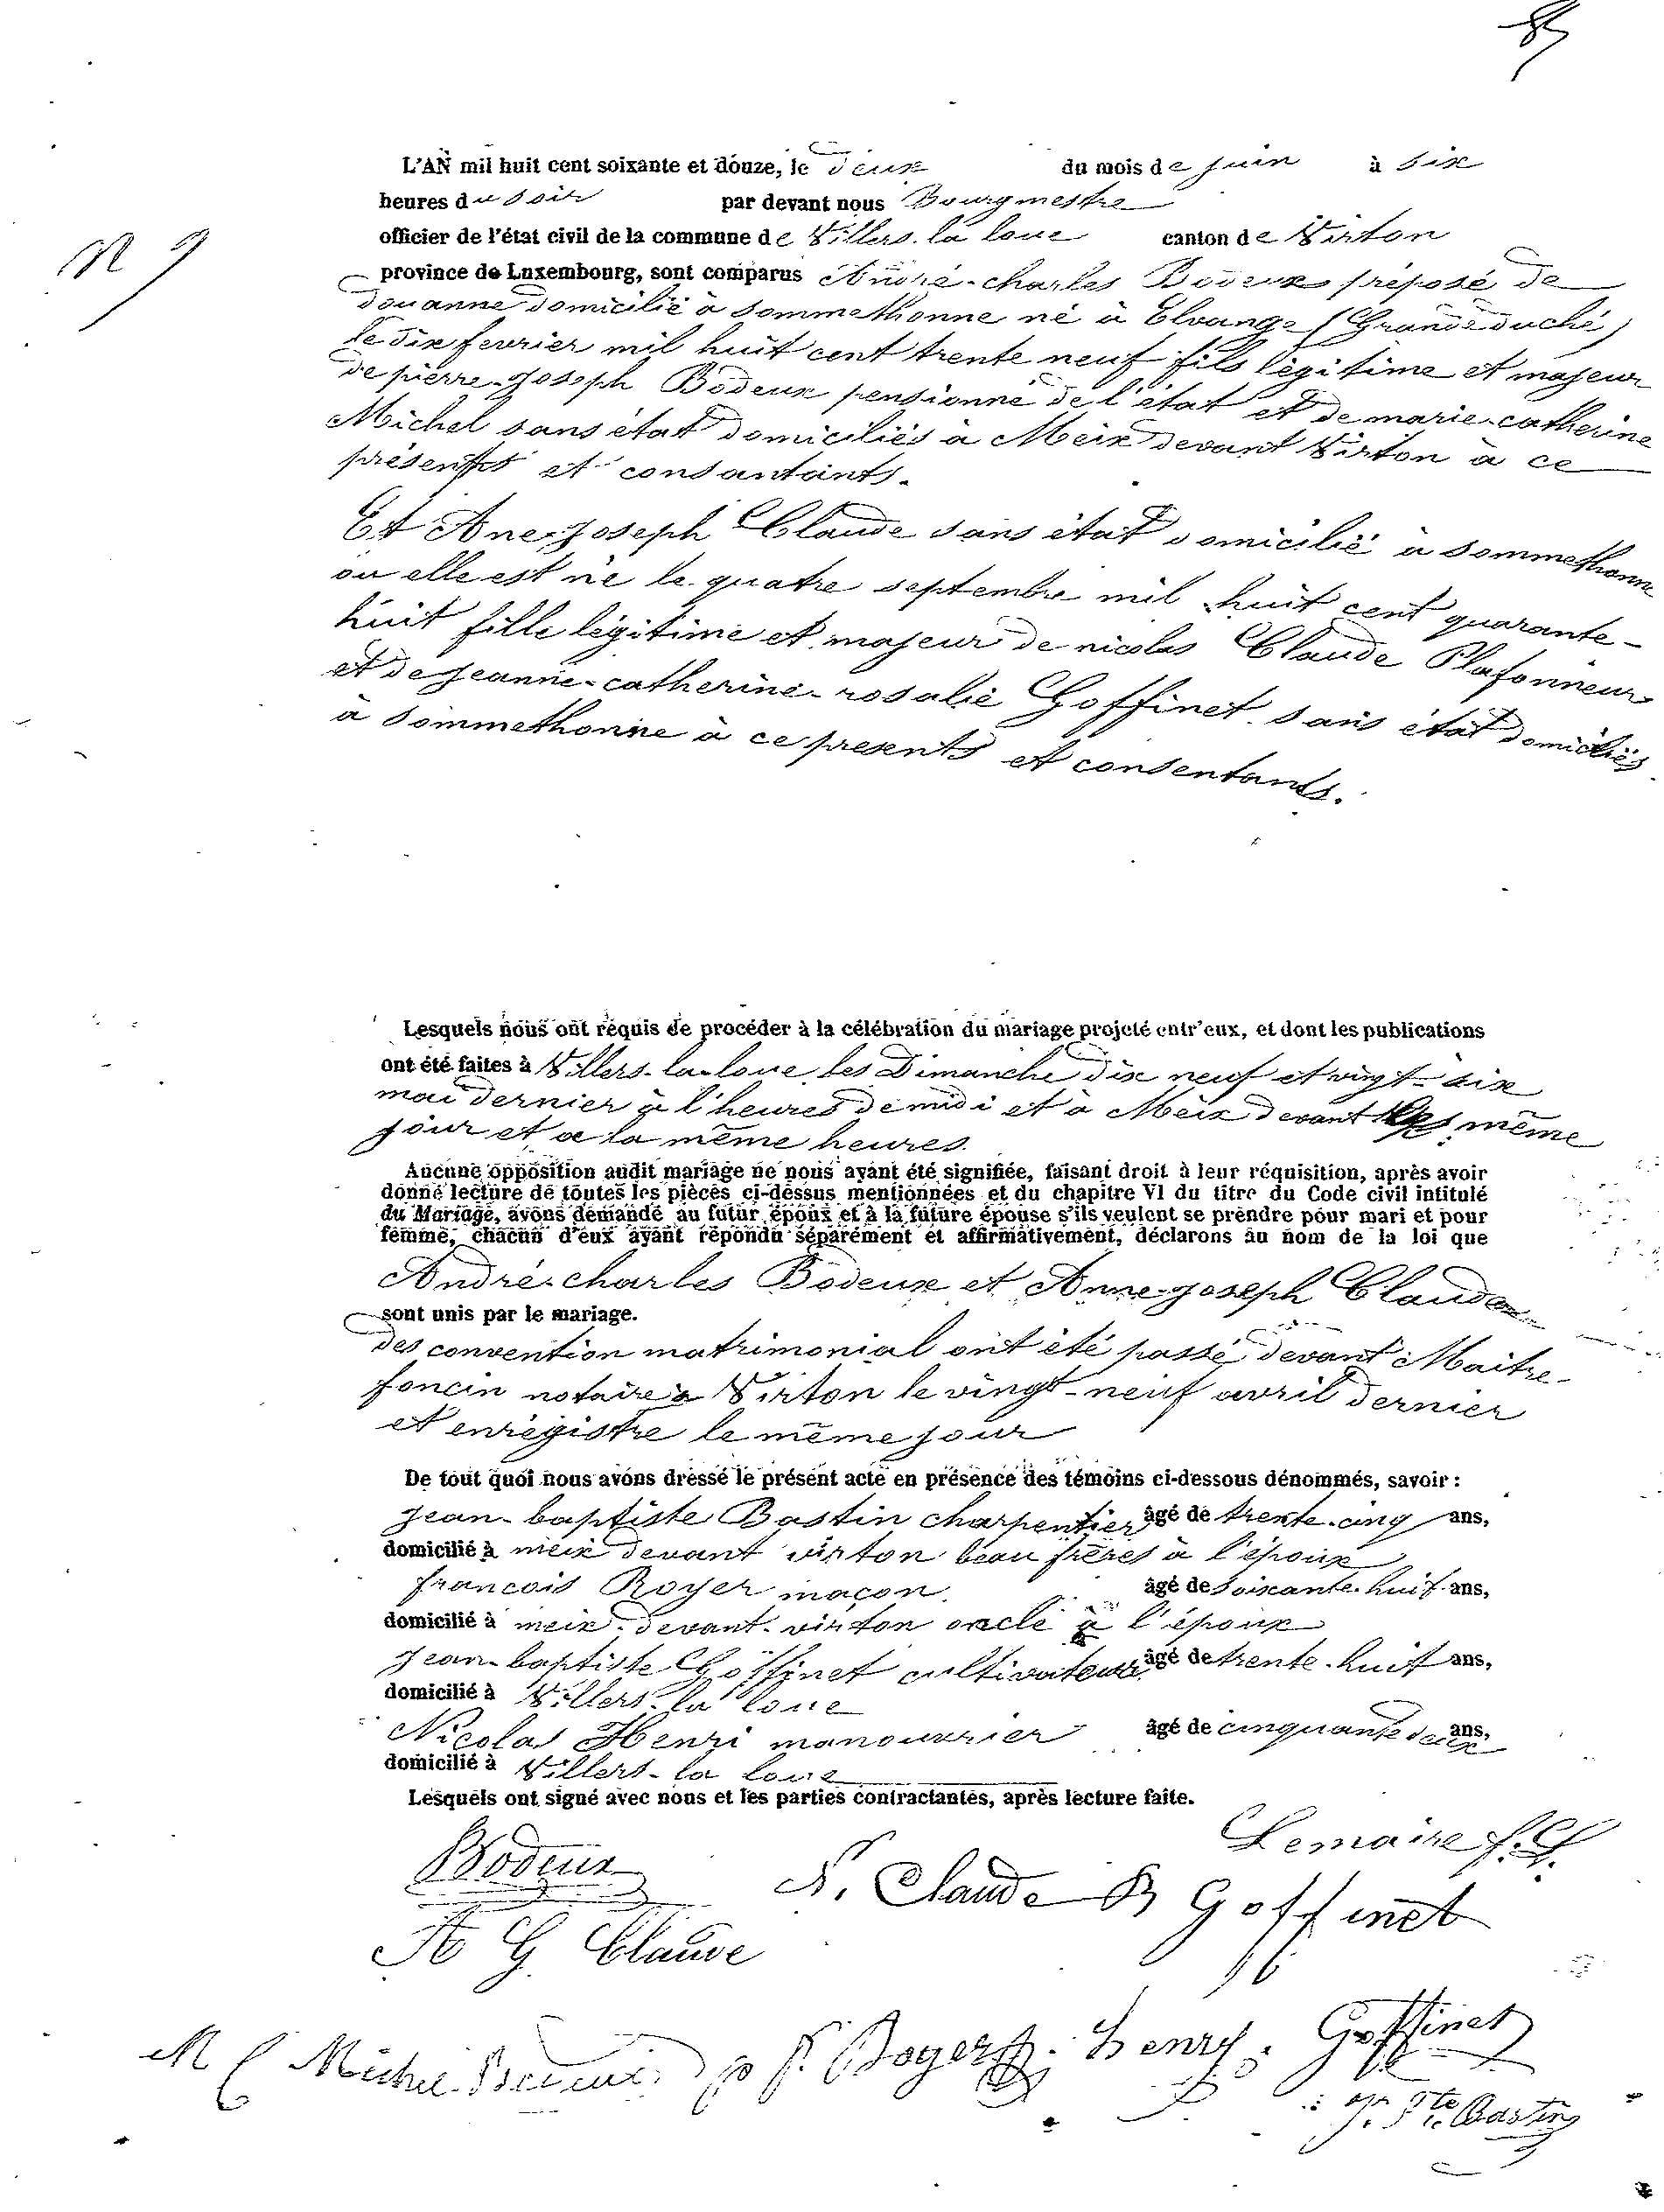 85
N 9
L'AN mil huit cent soixante et douze, le deux du mois de juin à six
heures du soir par devant nous Bourgmestre
officier de l'état civil de la commune de Villers-la-loue canton de Virton
province de Luxembourg, sont comparus André-charles Bodeux préposé de
douanne domicilié à sommethonne né à Elvange (Grandduché)
le dix fevrier mil huit cent trente neuf fils légitime et majeur
de pierre-Joseph Bodeux pensionné de l'état et de marie-catherine
Michel sans état domiciliés à Meix devant Virton à ce
présents et consantants.
Et Ane-joseph Claude sans état domicilié à sommethonne
ou elle est né le quatre septembre mil huit cent quarante-
huit fille légitime et majeur de nicolas Claude Plafonneur
et de jeanne-catherine-rosalie Goffinet sans état domiciliés
à sommethonne à ce presents et consentants.
Lesquels nous ont requis de procéder à la célébration du mariage projeté entr'eux, et dont les publications
ont été faites à Villers-la-loue les Dimanche dix neuf et vingt-six
mai dernier à l'heures de midi et à Meix devant même
jour et a la même heures.
Aucune opposition audit mariage ne nous ayant été signifiée, faisant droit à leur réquisition, après avoir
donné lecture de toutes les pièces ci-dessus mentionnées et du chapitre VI du titre du Code civil intitulé
du Mariage, avons demandé au futur époux et à la future épouse s'ils veulent se prendre pour mari et pour
femme, chacun d'eux ayant répondu séparément et affirmativement, déclarons au nom de la loi que
André-charles Bodeux et Anne-joseph Claude
sont unis par le mariage.
des convention matrimonial ont été passé devant Maitre-
foncin notaire à Virton le vingt-neuf avril dernier
et enrégistre le même jour
De tout quoi nous avons dressé le présent acte en présence des témoins ci-dessous dénommés, savoir :
jean-baptiste Bastin charpentier âgé de trente-cinq ans,
domicilié à meix devant virton beau frères à l'époux
francois Royer maçon. âgé de soixante-huit ans,
domicilié à meix-devant-virton oncle à l'époux
jean-baptiste Goffinet cultivateur âgé de trente-huit ans,
domicilié à Villers-la loue
Nicolas Henri manouvrier âgé de cinquante deux ans,
domicilié à Villers-la loue
Lesquels ont signé avec nous et les parties contractantes, après lecture faite.
Lemaire f.f.
Bodeux
N. Claude R Goffinet
A G Claude
M C Michel f. Royer henry. Goffinet
Jn Bte Bastin